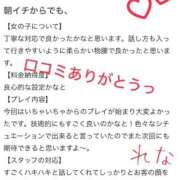 朝イチからでも、
【女の子について】
丁寧な対応で良かったかなと思います。話し方も入
って行きやすいように柔らかい物腰で良かったと思いま
す。
口コミありがとうっ
【料金納得度】
良心的な設定かなと
【プレイ内容】
今回はいちゃいちゃからのプレイが始まり大変よかっ
たです。技術的にもすごく良いのかなと！色々なシチ
ュエーションで出来ると言っていたのでまた次回にも
期待できると思いますよ〜。
れな
【スタッフの対応】
すごくハキハキと話してくれてしっかりとお客の顔を